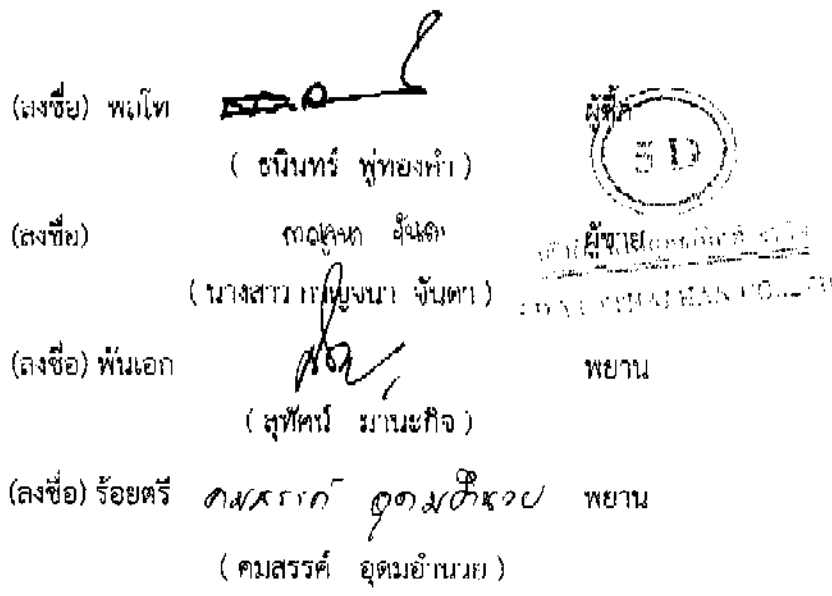 (ลงชื่อ) พลโท ผู้ซื้อ
( ธนินทร์ พู่ทองคำ )
(ลงชื่อ) กาญจนา จันดา ผู้ขาย
( นางสาว กาญจนา จันดา )
(ลงชื่อ) พันเอก พยาน
( สุทัศน์ มานะกิจ )
(ลงชื่อ) ร้อยตรี คมสรรค์ อุดมอำนวย พยาน
( คมสรรค์ อุดมอำนวย )